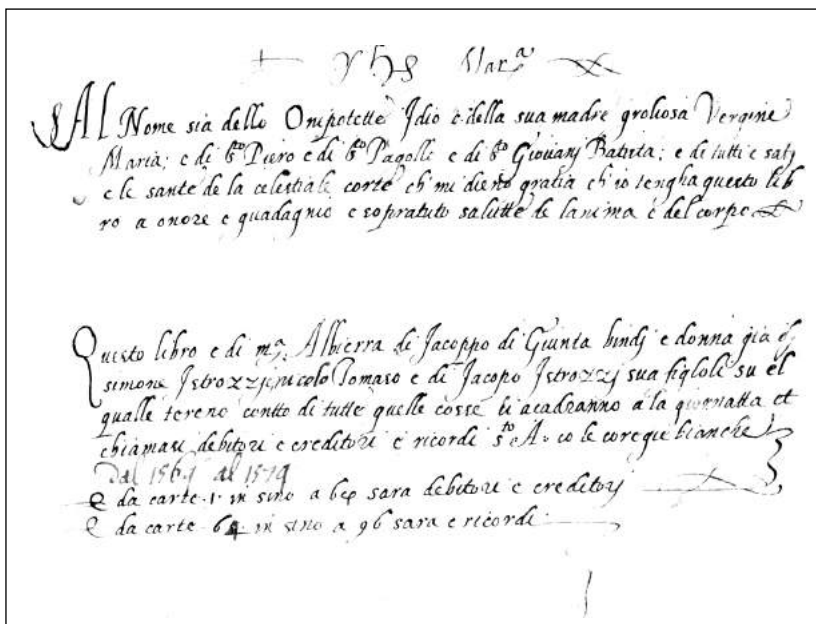 + yhs Mar.a
Al Nome sia dello Onipotette Idio e della sua madre groliosa Vergine
Maria; e di sto Piero e di sto Pagollo e di sto Giovanj Batista; e di tutti e satj
e le sante de la celestiale corte ch mi dieno gratia ch io tengha questo lib
ro a onore e guadagnio e sopratuto salutte de lanima e del corpo
Questo libro e di ma. Albierra di Jacoppo di Guinta bindj e donna gia dj
simone Istrozzj e nicolo Tomaso e di Jacopo Istrozzj sua figloli su el
qualle tereno contto di tutte quelle cosse li acadranno a la giornatta et
chiamasi debitori e creditori e ricordi sto A. co le coregie bianche
Dal 1564 al 1579
e da carte .1. in sino a 60 sara debitori e creditorj
e da carte 64 in sino a 96 sara e ricordi